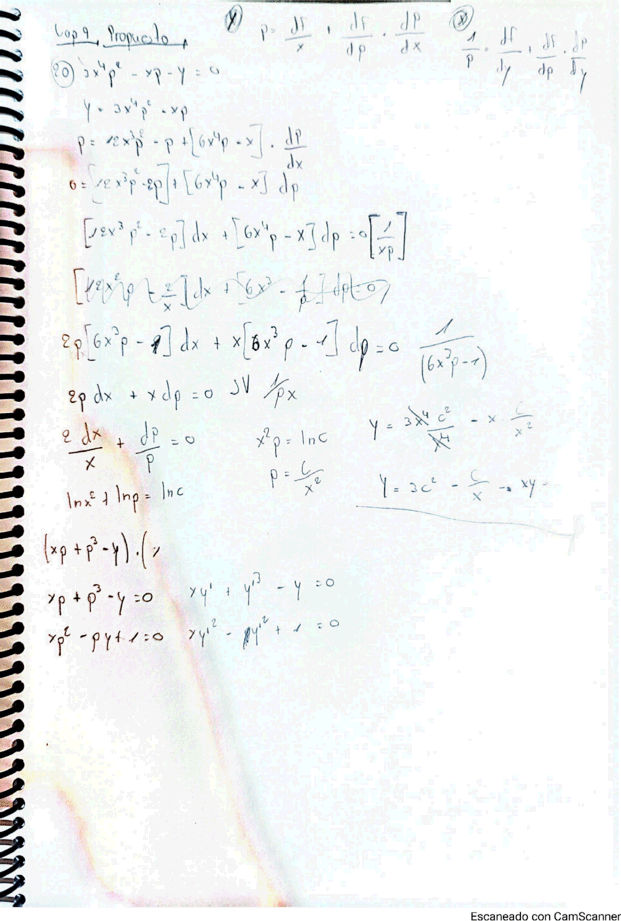 Cap 9. Propuesto
(y) p = df/x + df/dp · dp/dx
(x) 1/p = df/dy + df/dp · dp/dy
(20) 3x⁴p² - xp - y = 0
y = 3x⁴p² - xp
p = 12x³p² - p + [6x⁴p - x] · dp/dx
0 = [12x³p² - 2p] + [6x⁴p - x] dp
[12x³p² - 2p] dx + [6x⁴p - x] dp = 0 [1/xp]
[12x²p - 2/x] dx + [6x³ - 1/p] dp = 0
2p [6x³p - 1] dx + x [6x³p - 1] dp = 0 1/(6x³p - 1)
2p dx + x dp = 0 1/px
2 dx/x + dp/p = 0
x²p = lnc
y = 3x⁴ c²/x⁴ - x · c/x²
p = c/x²
lnx² + lnp = lnc
y = 3c² - c/x → xy -
(xp + p³ - y) · (x
xp + p³ - y = 0 xy' + y'³ - y = 0
xp² - py + 1 = 0 xy'² - yy'² + 1 = 0
Escaneado con CamScanner